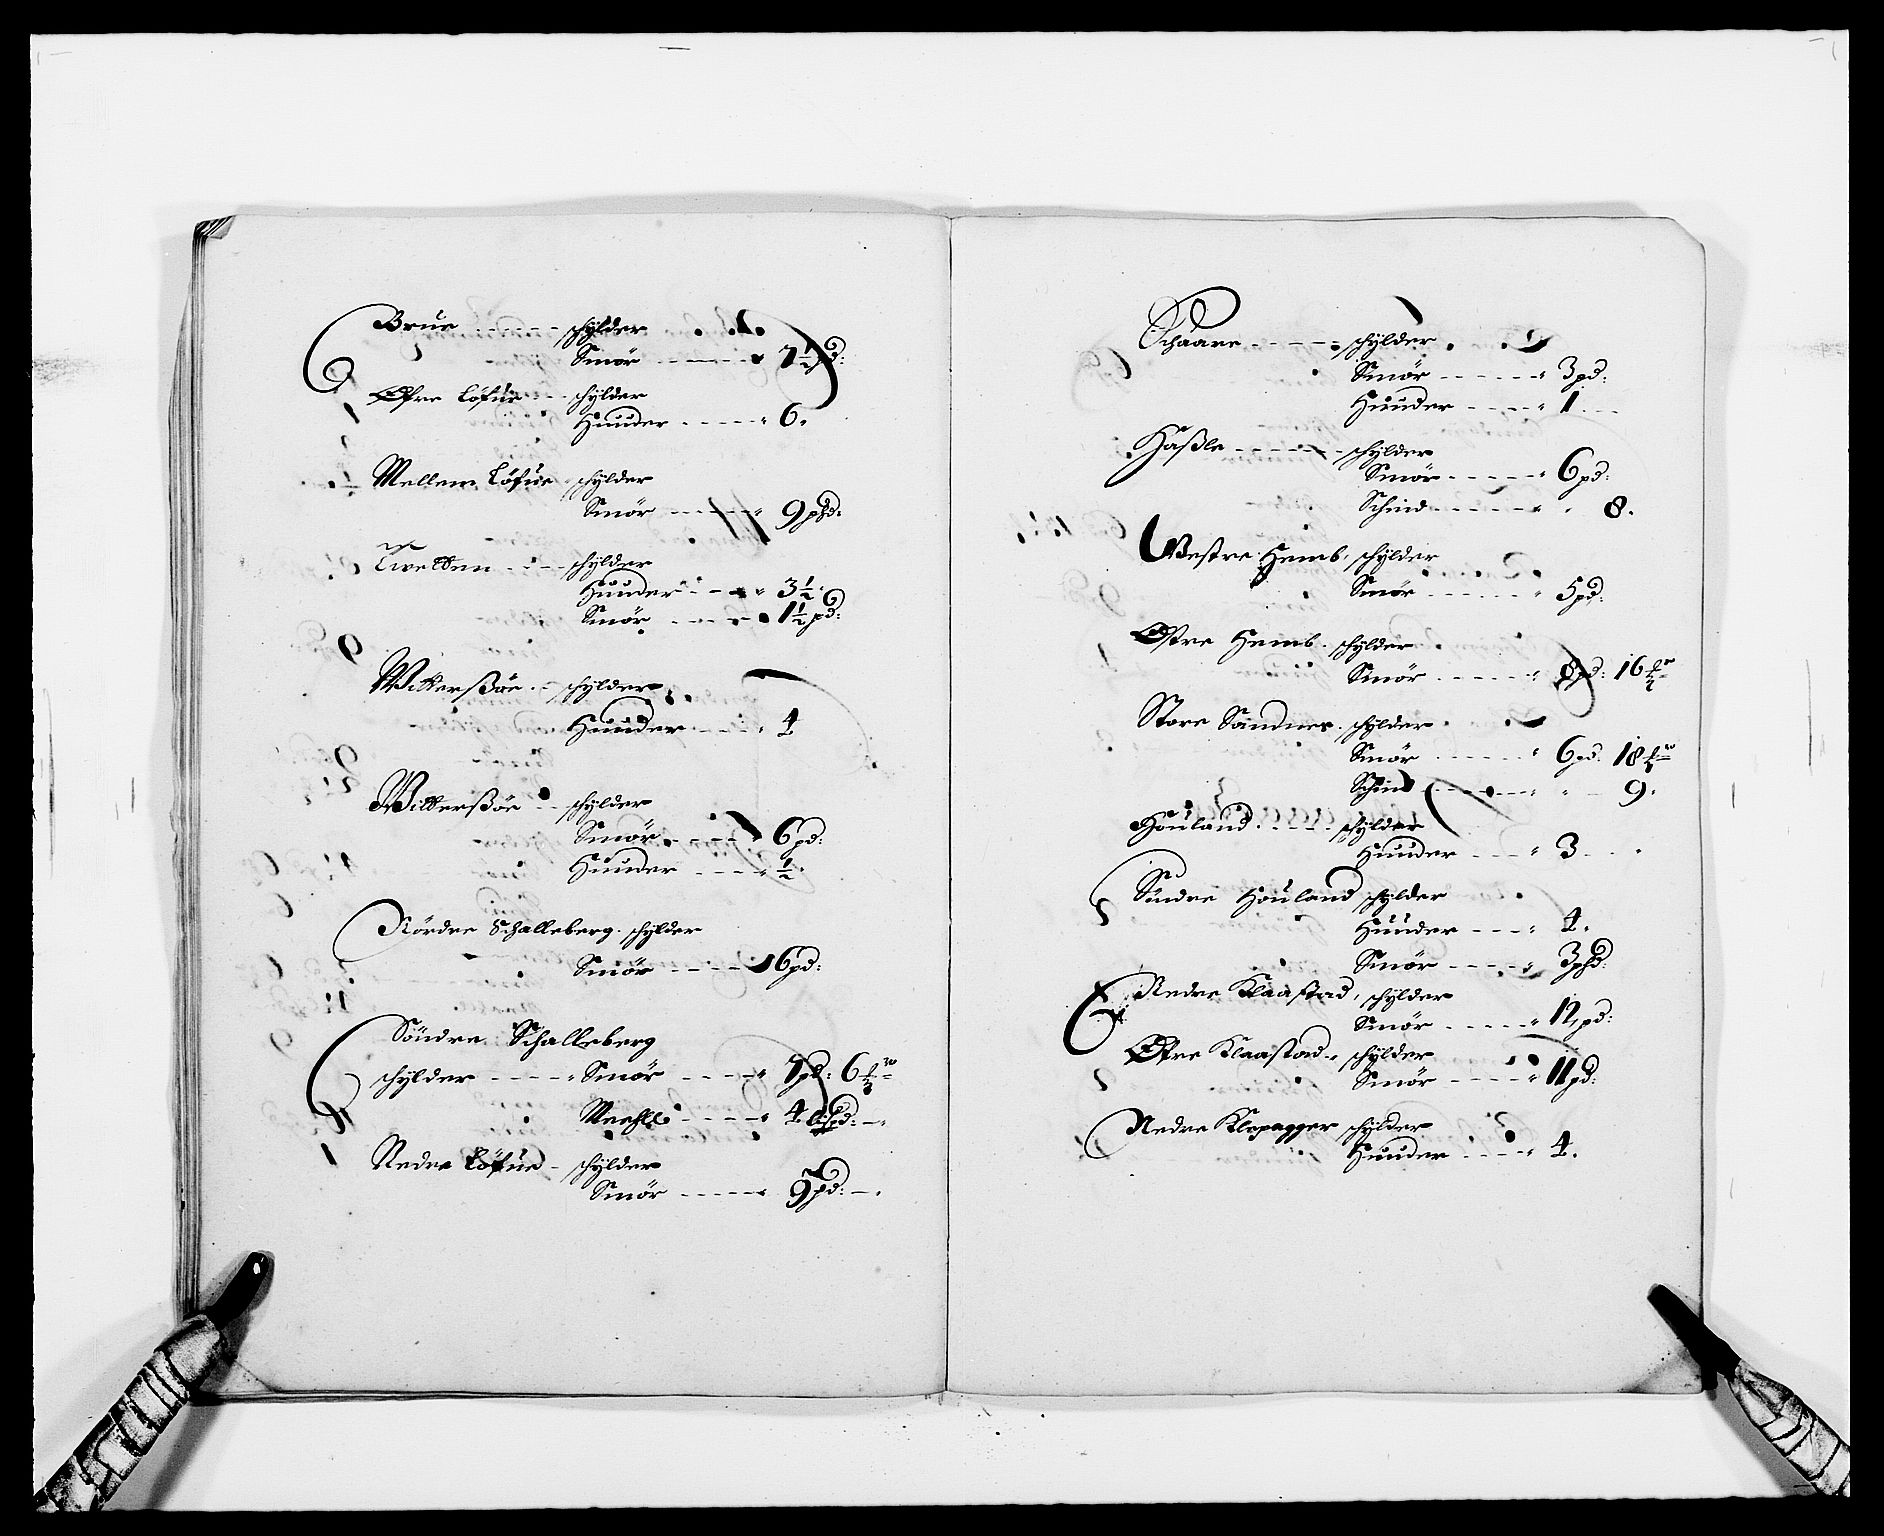 Brue - - - - - schylder
Smör - - - - - 7½ pd:
Øfre Löfue - - schylder
Huuder - - - - - 6.
Mellem Löfue schylder
Smör - - - - - 9 phd:
Twetten - - - schylder
Huuder - - - - 3½
Smör - - - - 1½ pd:
Wikersßöe - - schylder
Huuder - - - - 4
Wilkersßöe - - schylder
Smör - - - - 6 pd:
Huuder - - - - ½.
Nördre Schalleberg schylder
Smör - - - - 6 pd:
Söndre Schalleberg
schylder - - - - Smör - - - - 7 pd: 6
Meehll - - - - 4 bispd: -
Nedre Löfue - schylder
Smör - - - - - 9 pd: -
Schaare - - - - - schylder
Smör - - - - - 3 pd:
Huuder - - - - 1 - -
Haßle - - - - - schylder
Smör - - - - - 6 pd:
Schind - - - - - 8.
Westre Hemb, schylder
Smör - - - - - 5 pd:
Østre Hemb. schylder
Smör - - - - - 8 pd: 16
Store Sandnes. schylder
Smör - - - - - 6 pd. 18
Schind - - - - - 9.
Houland - - - - schylder
Huuder - - - 3 - - .
Sündre Houland schylder
Huuder - - - 4.
Smör - - - - 3 phd:
Nedre Klaastad, schylder
Smör - - - - - 12 pd:
Øfre Klaastad - schylder
Smör - - - - - 11 pd:
Nedre Klopagger schylder
Huuder - - - - 4.